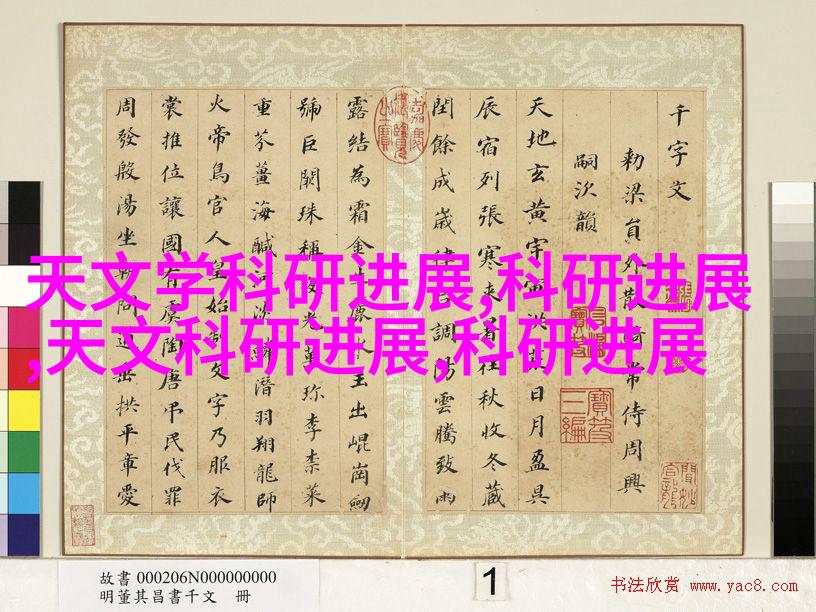 天文学科研进展,科研进展
,天文科研进展,科研进展
千字文
勅梁員外散騎常侍周興
嗣次韻
天地玄黃宇宙洪荒日月盈昃
辰宿列張寒来暑往秋收冬藏
閏餘成歲律呂調陽雲騰致雨
露結為霜金生麗水玉出崐岡劒
號巨闕珠稱夜光菓珍李柰菜
重芥薑海鹹河淡鱗潛羽翔龍師
火帝鳥官人皇始制文字乃服衣
裳推位讓國有虞陶唐弔民伐罪
周發殷湯坐朝問道垂拱平章愛
故書 000206N000000000
明董其昌書千文 冊
1
书法欣赏 www.yac8.com